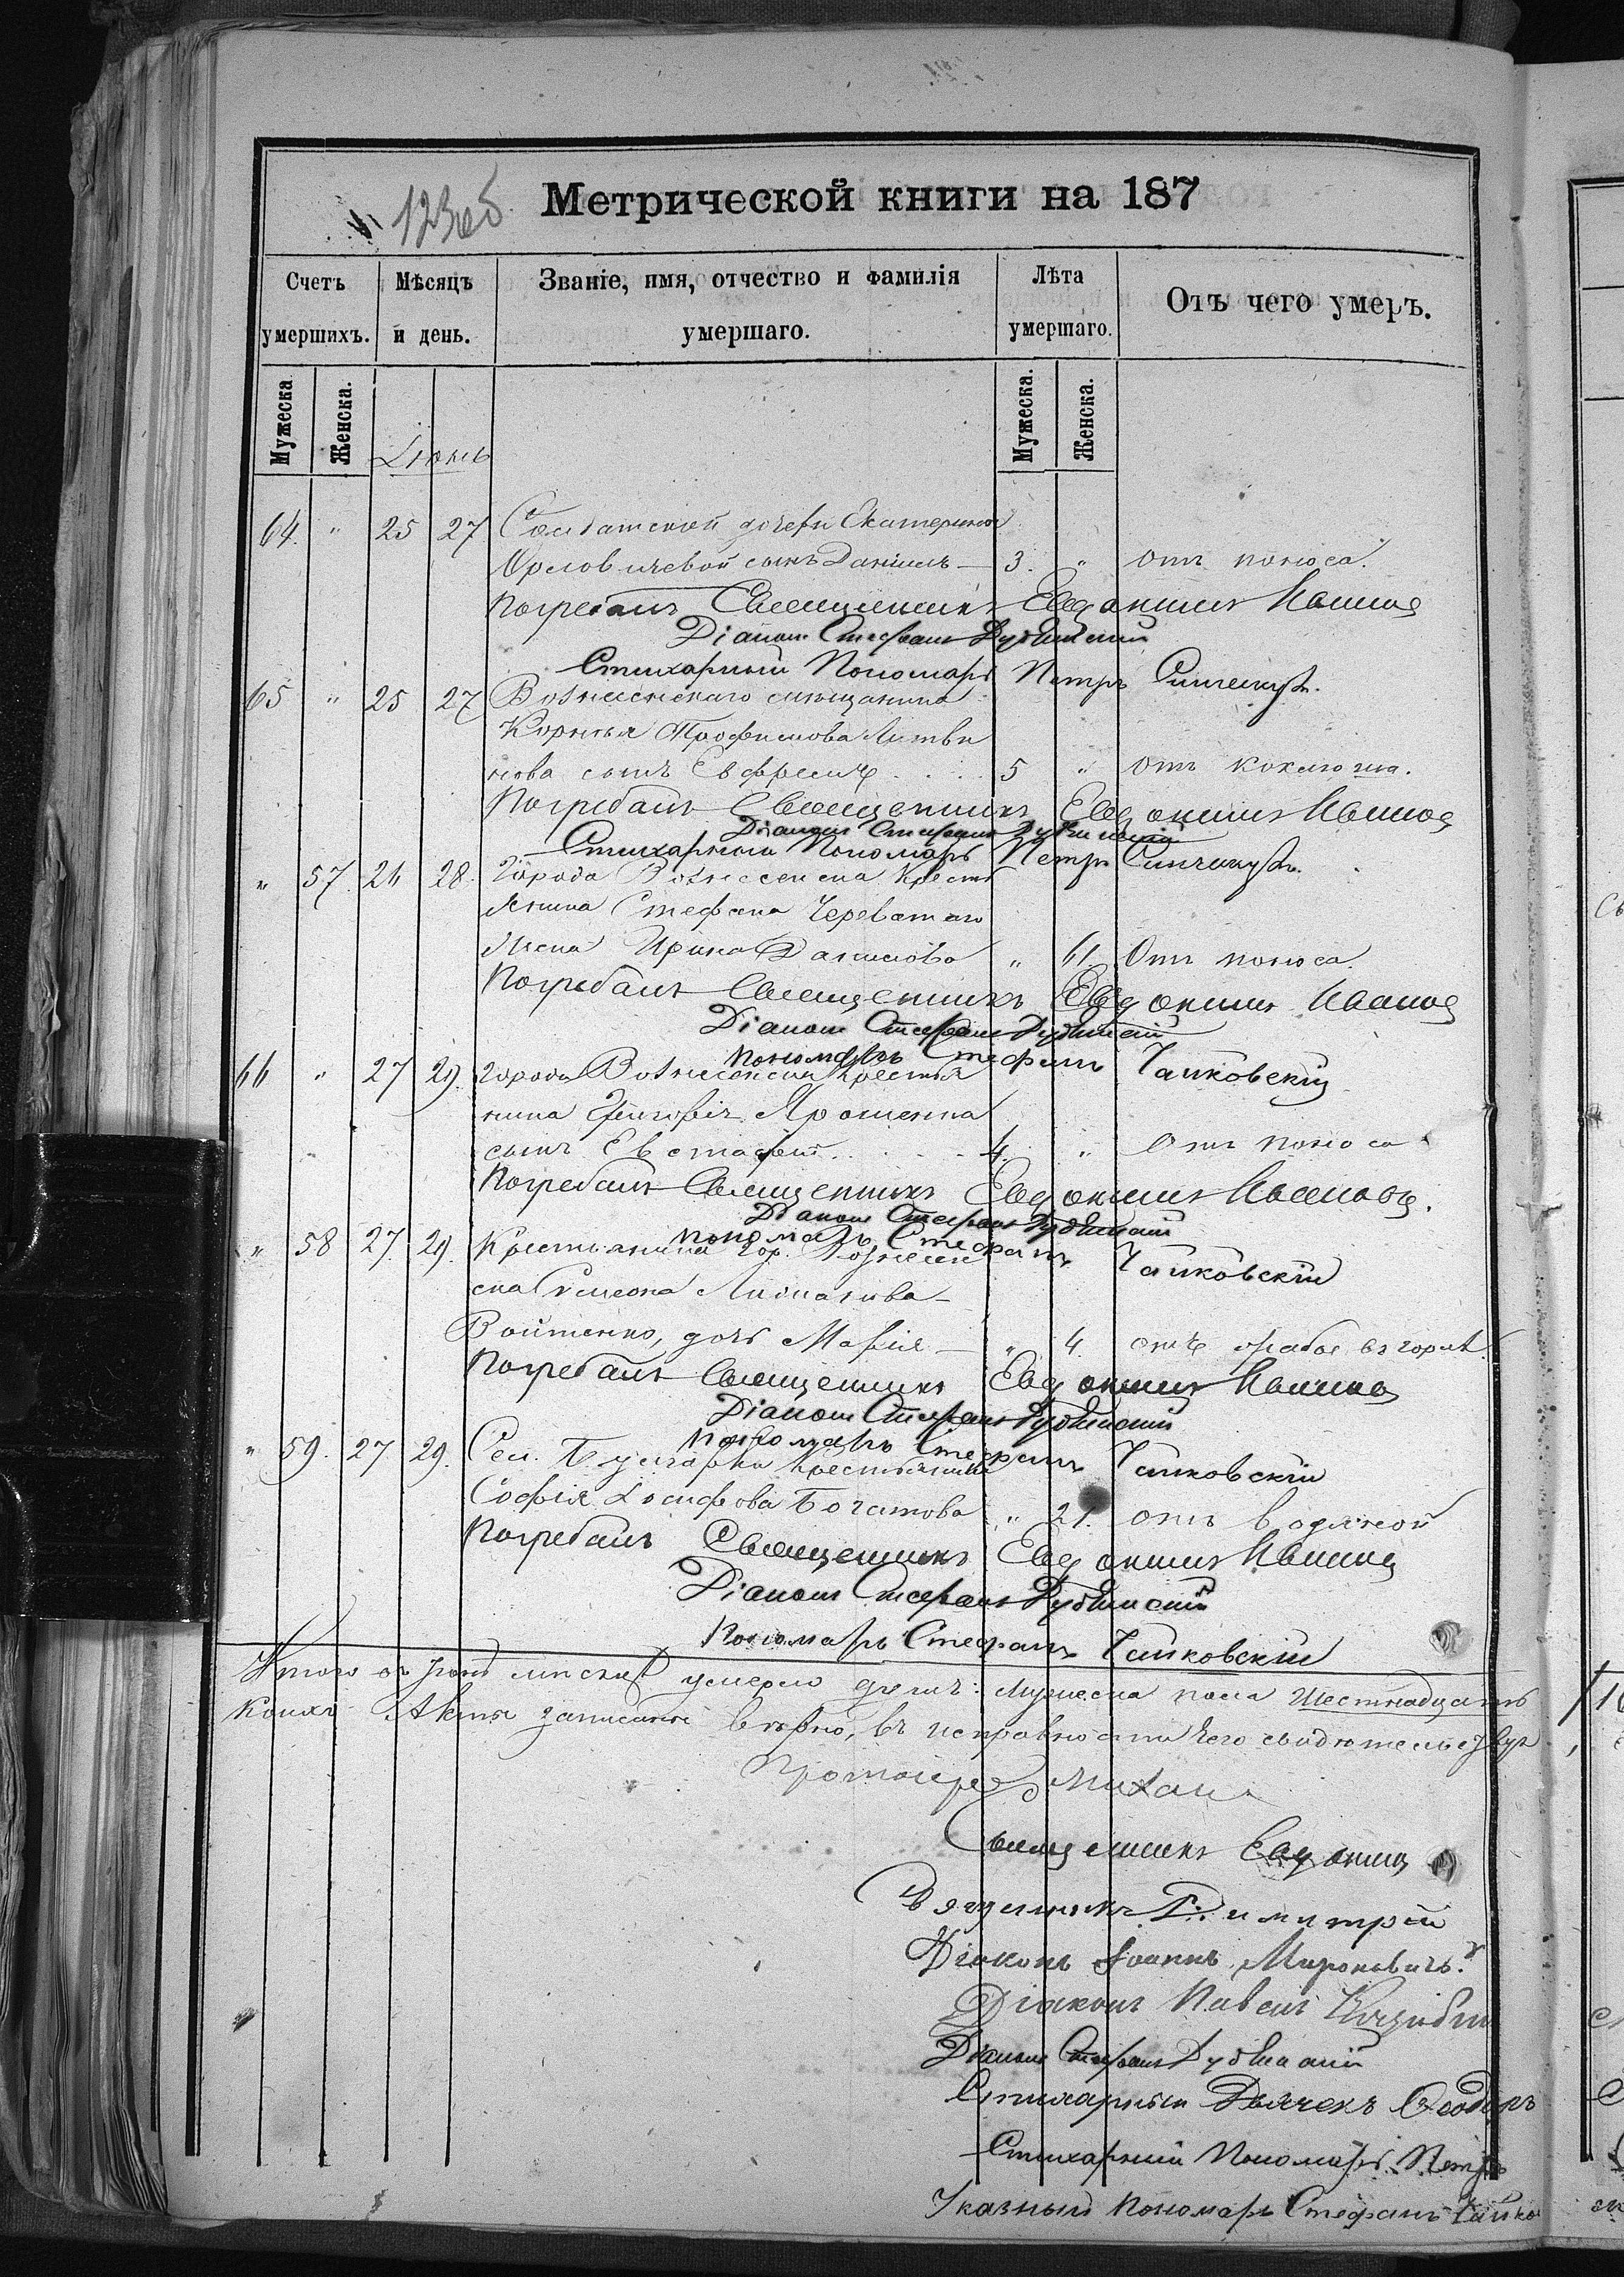 123об
Метрической книги на 187
Счетъ умершихъ.
Мѣсяцъ и день.
Званіе, имя, отчество и фамилія умершаго.
Лѣта умершаго.
Отъ чего умеръ.
Мужеска
Женска.
Мужеска.
Женска.
Іюнь
64. " 25 27 Солдатской дочери Екатерины
Орловичевой сынъ Даніилъ 3. " отъ поноса.
Погребалъ Священникъ Евдокимъ Иванов
Діаконъ Стефанъ
Стихарный Пономарь Петръ
65 " 25 27 Вознесенскаго мѣщанина
Корнѣя Трофимова Литви
нова сынъ Ефремъ 5 " отъ коклюша.
Погребалъ Священникъ Евдокимъ Иванов
Діаконъ Стефанъ
Стихарный Пономарь Петръ
" 57. 26 28. Города Вознесенска Кресть
янина Стефана Череватаго
жена Ирина Данилова " 61. Отъ поноса.
Погребалъ Священникъ Евдокимъ Иванов
Діаконъ Стефанъ
Пономарь Стефанъ Чайковскій
66 " 27 29. города Вознесенска Крестья
нина Григорія Ярошенка
сынъ Евстафій 4. " Отъ поноса
Погребалъ Священникъ Евдокимъ Иванов.
Діаконъ Стефанъ
Пономарь Стефанъ Чайковскій
" 58 27. 29. Крестьянина гор. Вознесен
ска Симеона
Войтенко, дочь Марія " 4. отъ
Погребалъ Священникъ Евдокимъ Иванов
Діаконъ Стефанъ
Пономарь Стефанъ Чайковскій
" 59. 27 29. Сел. Булгарки Крестьянка
Софія Іосифова Богатова " 21. отъ водяной
Погребалъ Священникъ Евдокимъ Иванов
Діаконъ Стефанъ
Пономарь Стефанъ Чайковскій
Итого въ Іюнѣ мѣсяцѣ умерло душъ: мужеска пола Шестнадцать
коихъ Акты записаны вѣрно, въ исправности чего свидѣтельству
Протоіерей Михаил
Священникъ Евдоким
Священникъ Димитрій
Діаконъ Іоаннъ Мироновичъ.
Діаконъ Павелъ
Діаконъ Стефанъ
Стихарный Дьячекъ Ѳеодоръ
Стихарный Пономарь Петръ
Указный Пономарь Стефанъ Чайко